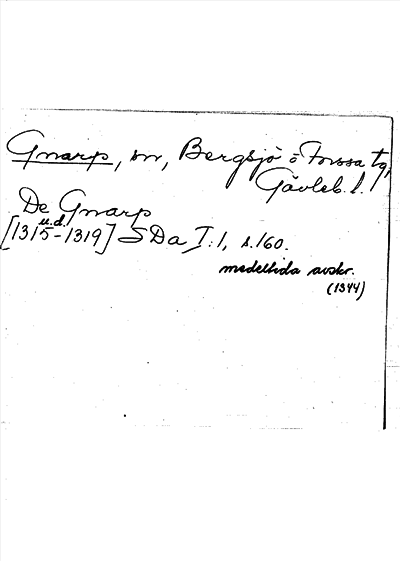 Gnarp, sn, Bergsjö o Forssa tg,
Gävleb. l.
De Gnarp
u.d.
[1315-1319] SDa I:1, s.160.
medeltida avskr.
(1344)